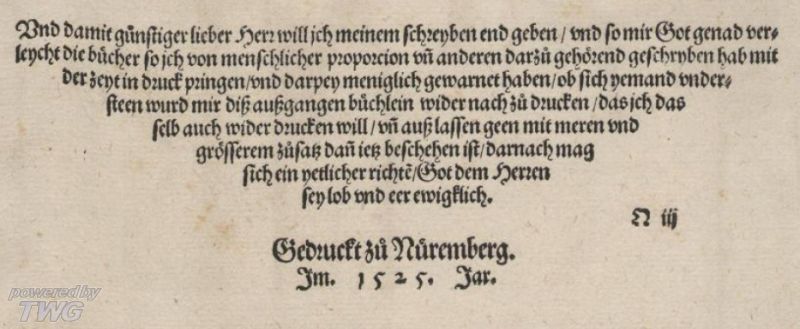 Vnd damit gůnstiger lieber Herr will jch meinem schreyben end geben / vnd so mir Got genad ver⸗
leycht die bůcher so jch von menschlicher proporcion vñ anderen darzů gehörend geschryben hab mit
der zeyt in druck pringen/vnd darpey meniglich gewarnet haben/ob sich yemand vnder⸗
steen wurd mir diß außgangen bůchlein wider nach zů drucken /das jch das
selb auch wider drucken will/vñ auß lassen geen mit meren vnd
grösserem zůsatz dañ ietz beschehen ist/darnach mag
sich ein yetlicher richtē/Got dem Herren
sey lob vnd eer ewigklich.
N iij
Gedruckt zů Nůremberg.
Im. 1525. Jar.
powered by
TWG